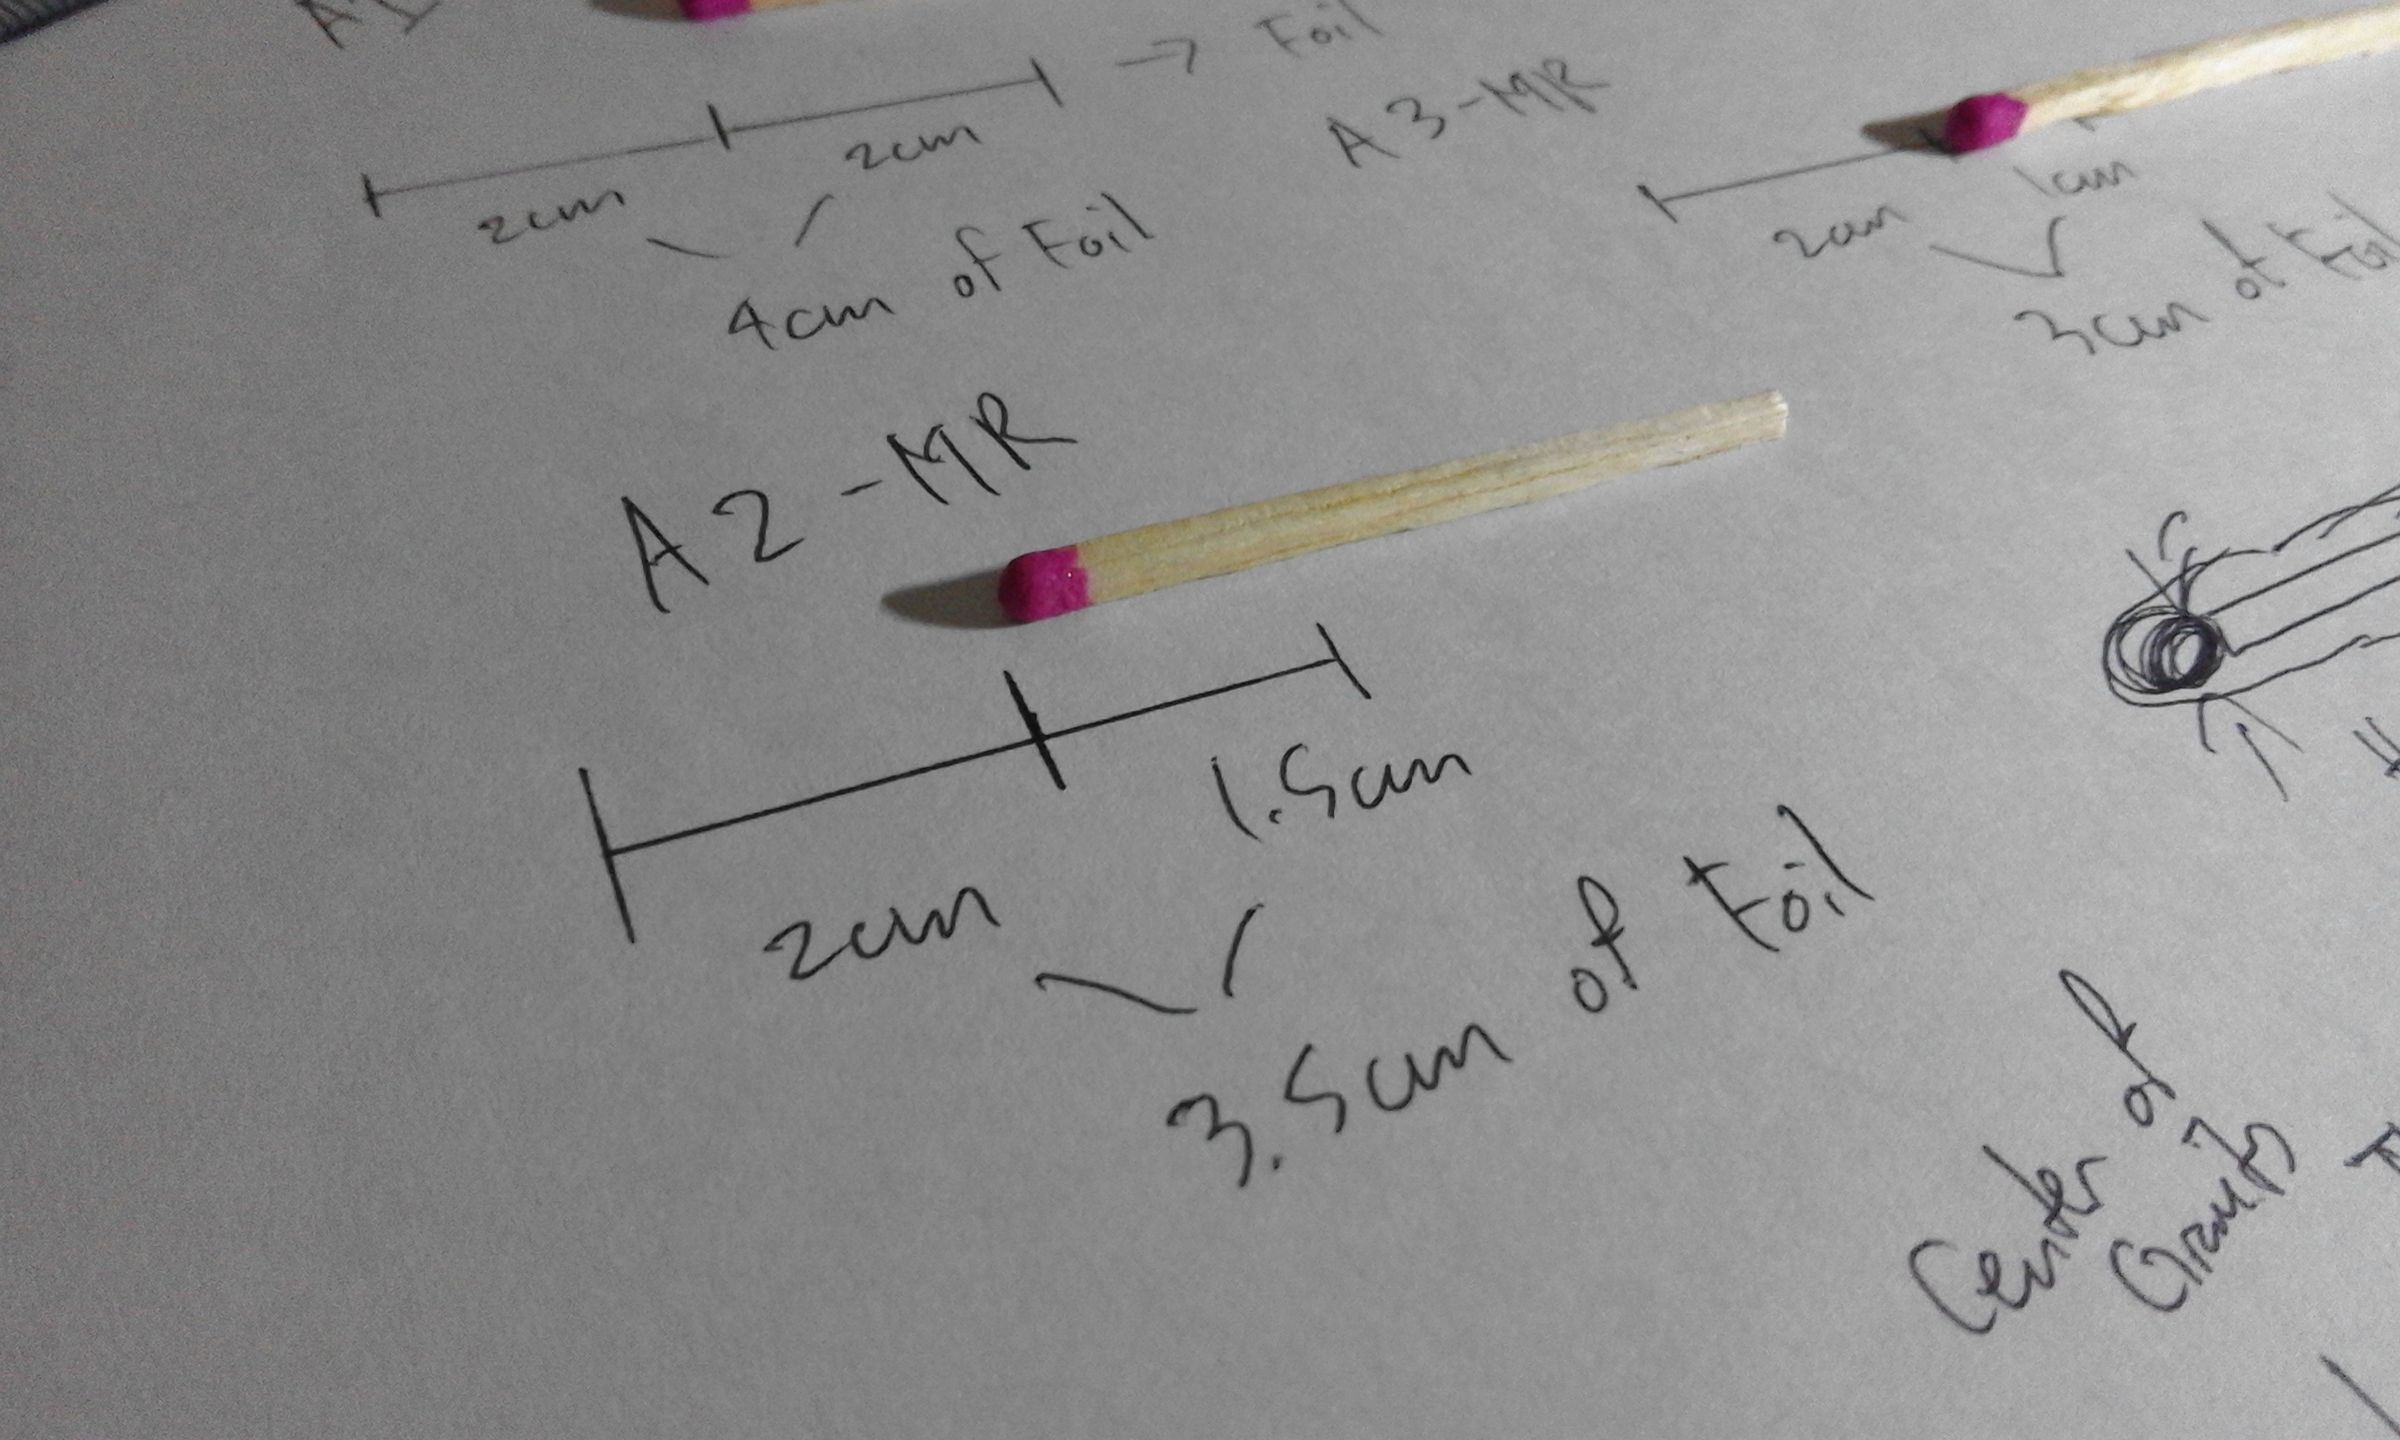 → Foil
2cm 2cm
4cm of Foil
A3-MR
2cm 1cm
3cm of Foil
A2-MR
2cm 1.5cm
3.5cm of Foil
Center of
Gravity